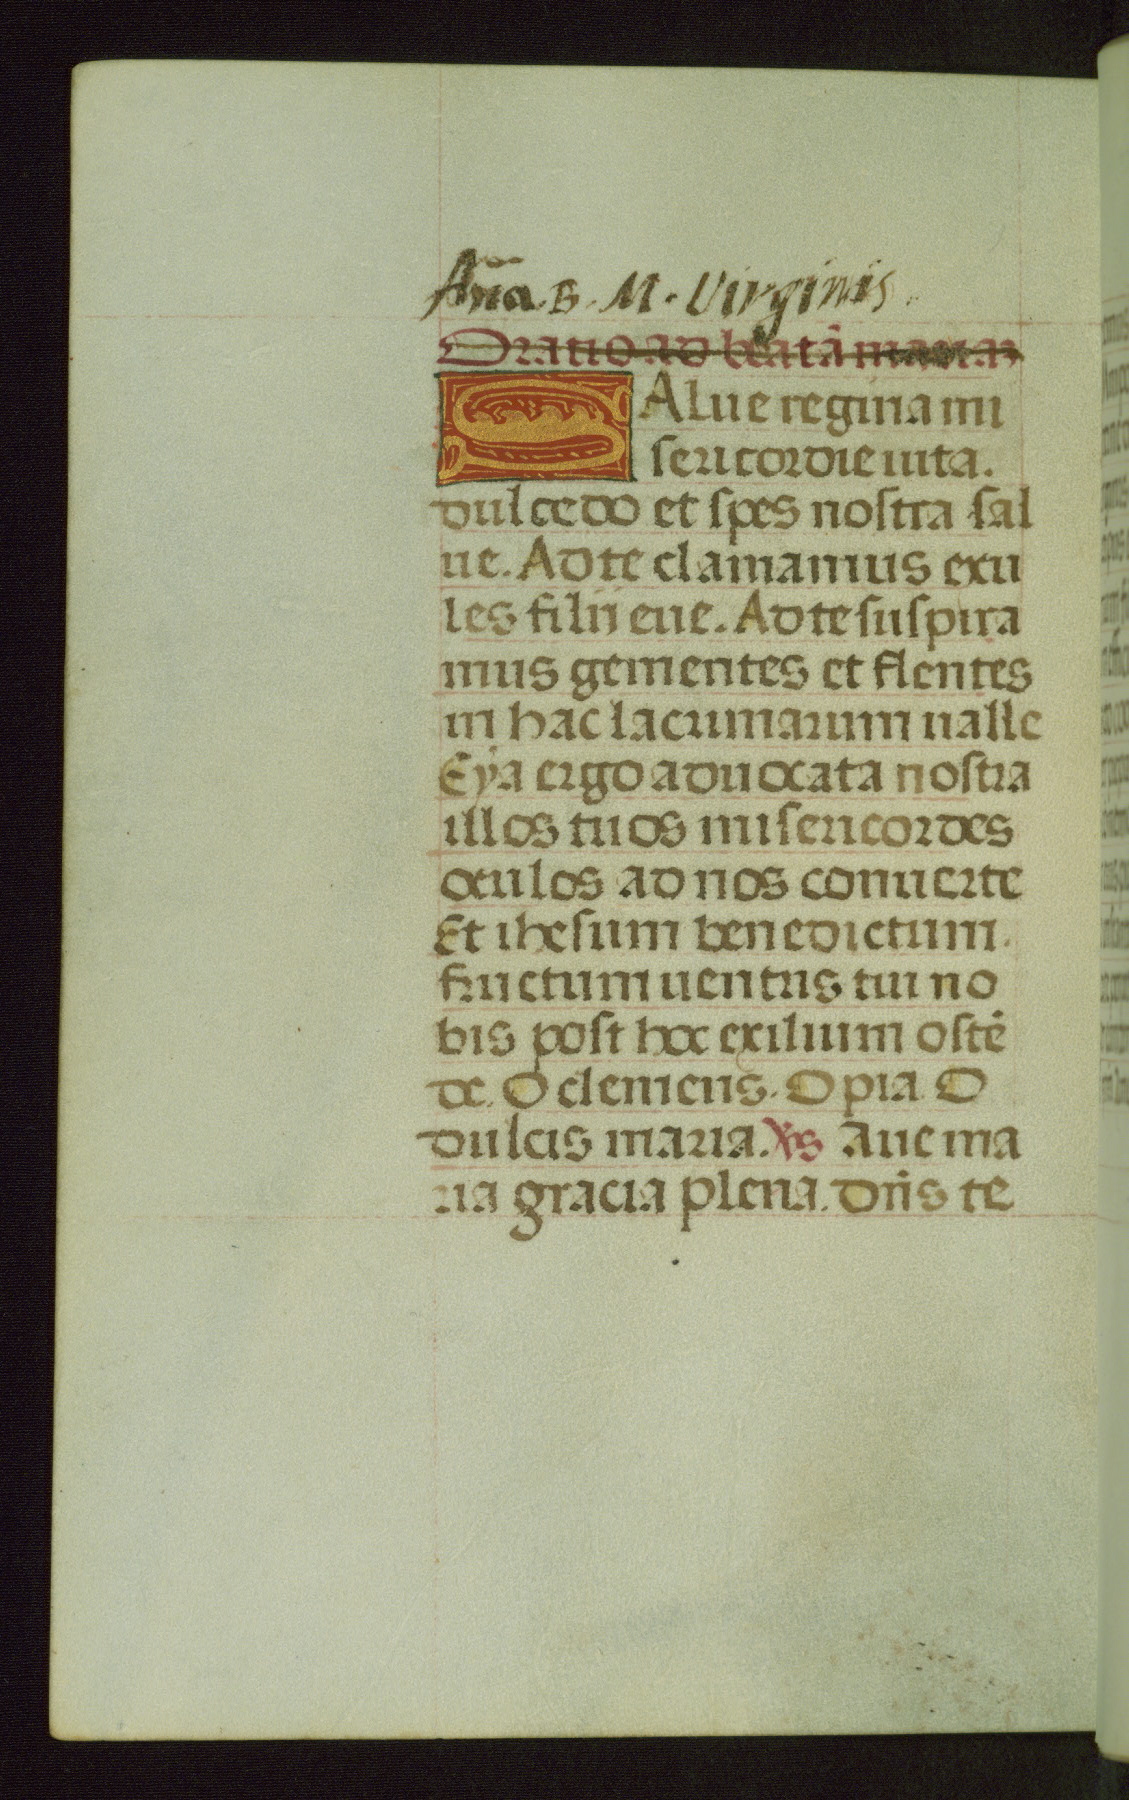 Aña. B. M. Virginis.
Oratio ad beatã mariaz
SAlue regina mi
sericordie uita.
dulcedo et spes nostra sal
ue. Ad te clamamus exu
les filii eue. Ad te suspira
mus gementes et flentes
in hac lacrimarum ualle
Eya ergo aduocata nostra
illos tuos misericordes
oculos ad nos conuerte
Et ihesum benedictum.
fructum uentris tui no
bis post hoc exilium ostẽ
de. O clemens. O pia. O
dulcis maria. V̄s Aue ma
ria gracia plena. Dñs te